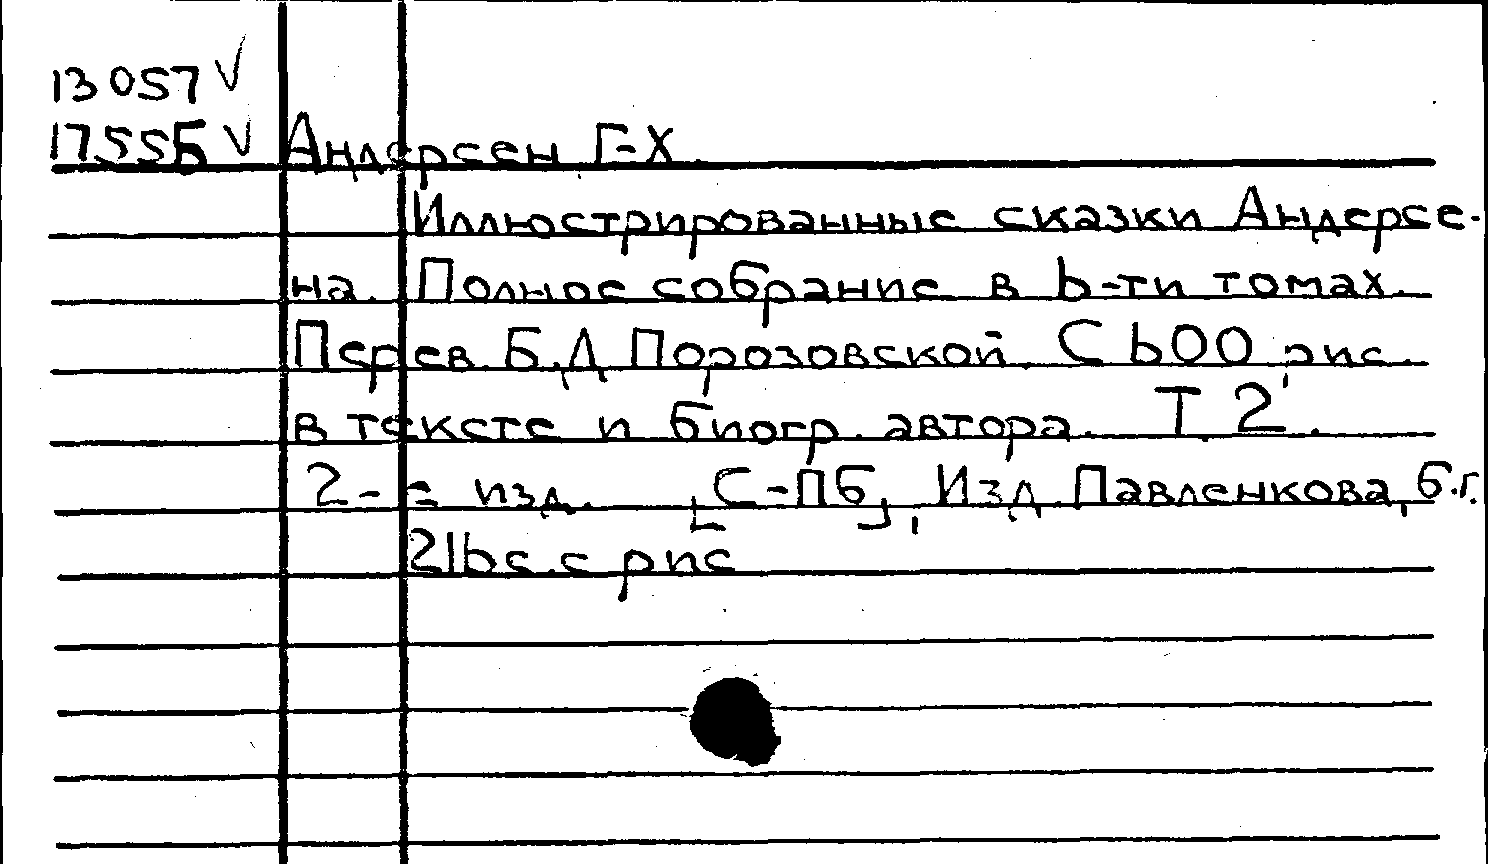 13057 √
17556 √ Андерсен Г-Х.
Иллюстрированные сказки Андерсе-
на. Полное собрание в 6-ти томах.
Перев. Б.Д Порозовской. С 600 рис.
в тексте и биогр. автора. Т. 2.
2-е изд. [С-Пб], Изд. Павленкова, б.г.
216с. с рис